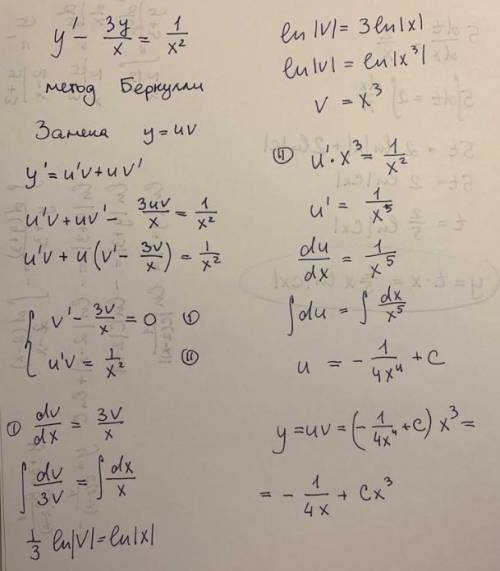 y' - 3y/x = 1/x²
метод Беркулли
Замена y = uv
y' = u'v + uv'
u'v + uv' - 3uv/x = 1/x²
u'v + u(v' - 3v/x) = 1/x²
{ v' - 3v/x = 0 Ⓘ
u'v = 1/x² Ⓘⓘ
Ⓘ dv/dx = 3v/x
∫ dv/3v = ∫ dx/x
1/3 ln|V| = ln|x|
ln|V| = 3 ln|x|
ln|V| = ln|x³|
V = x³
Ⓘⓘ u' · x³ = 1/x²
u' = 1/x⁵
du/dx = 1/x⁵
∫ du = ∫ dx/x⁵
u = - 1/4x⁴ + C
y = uv = (- 1/4x⁴ + C) x³ =
= - 1/4x + Cx³